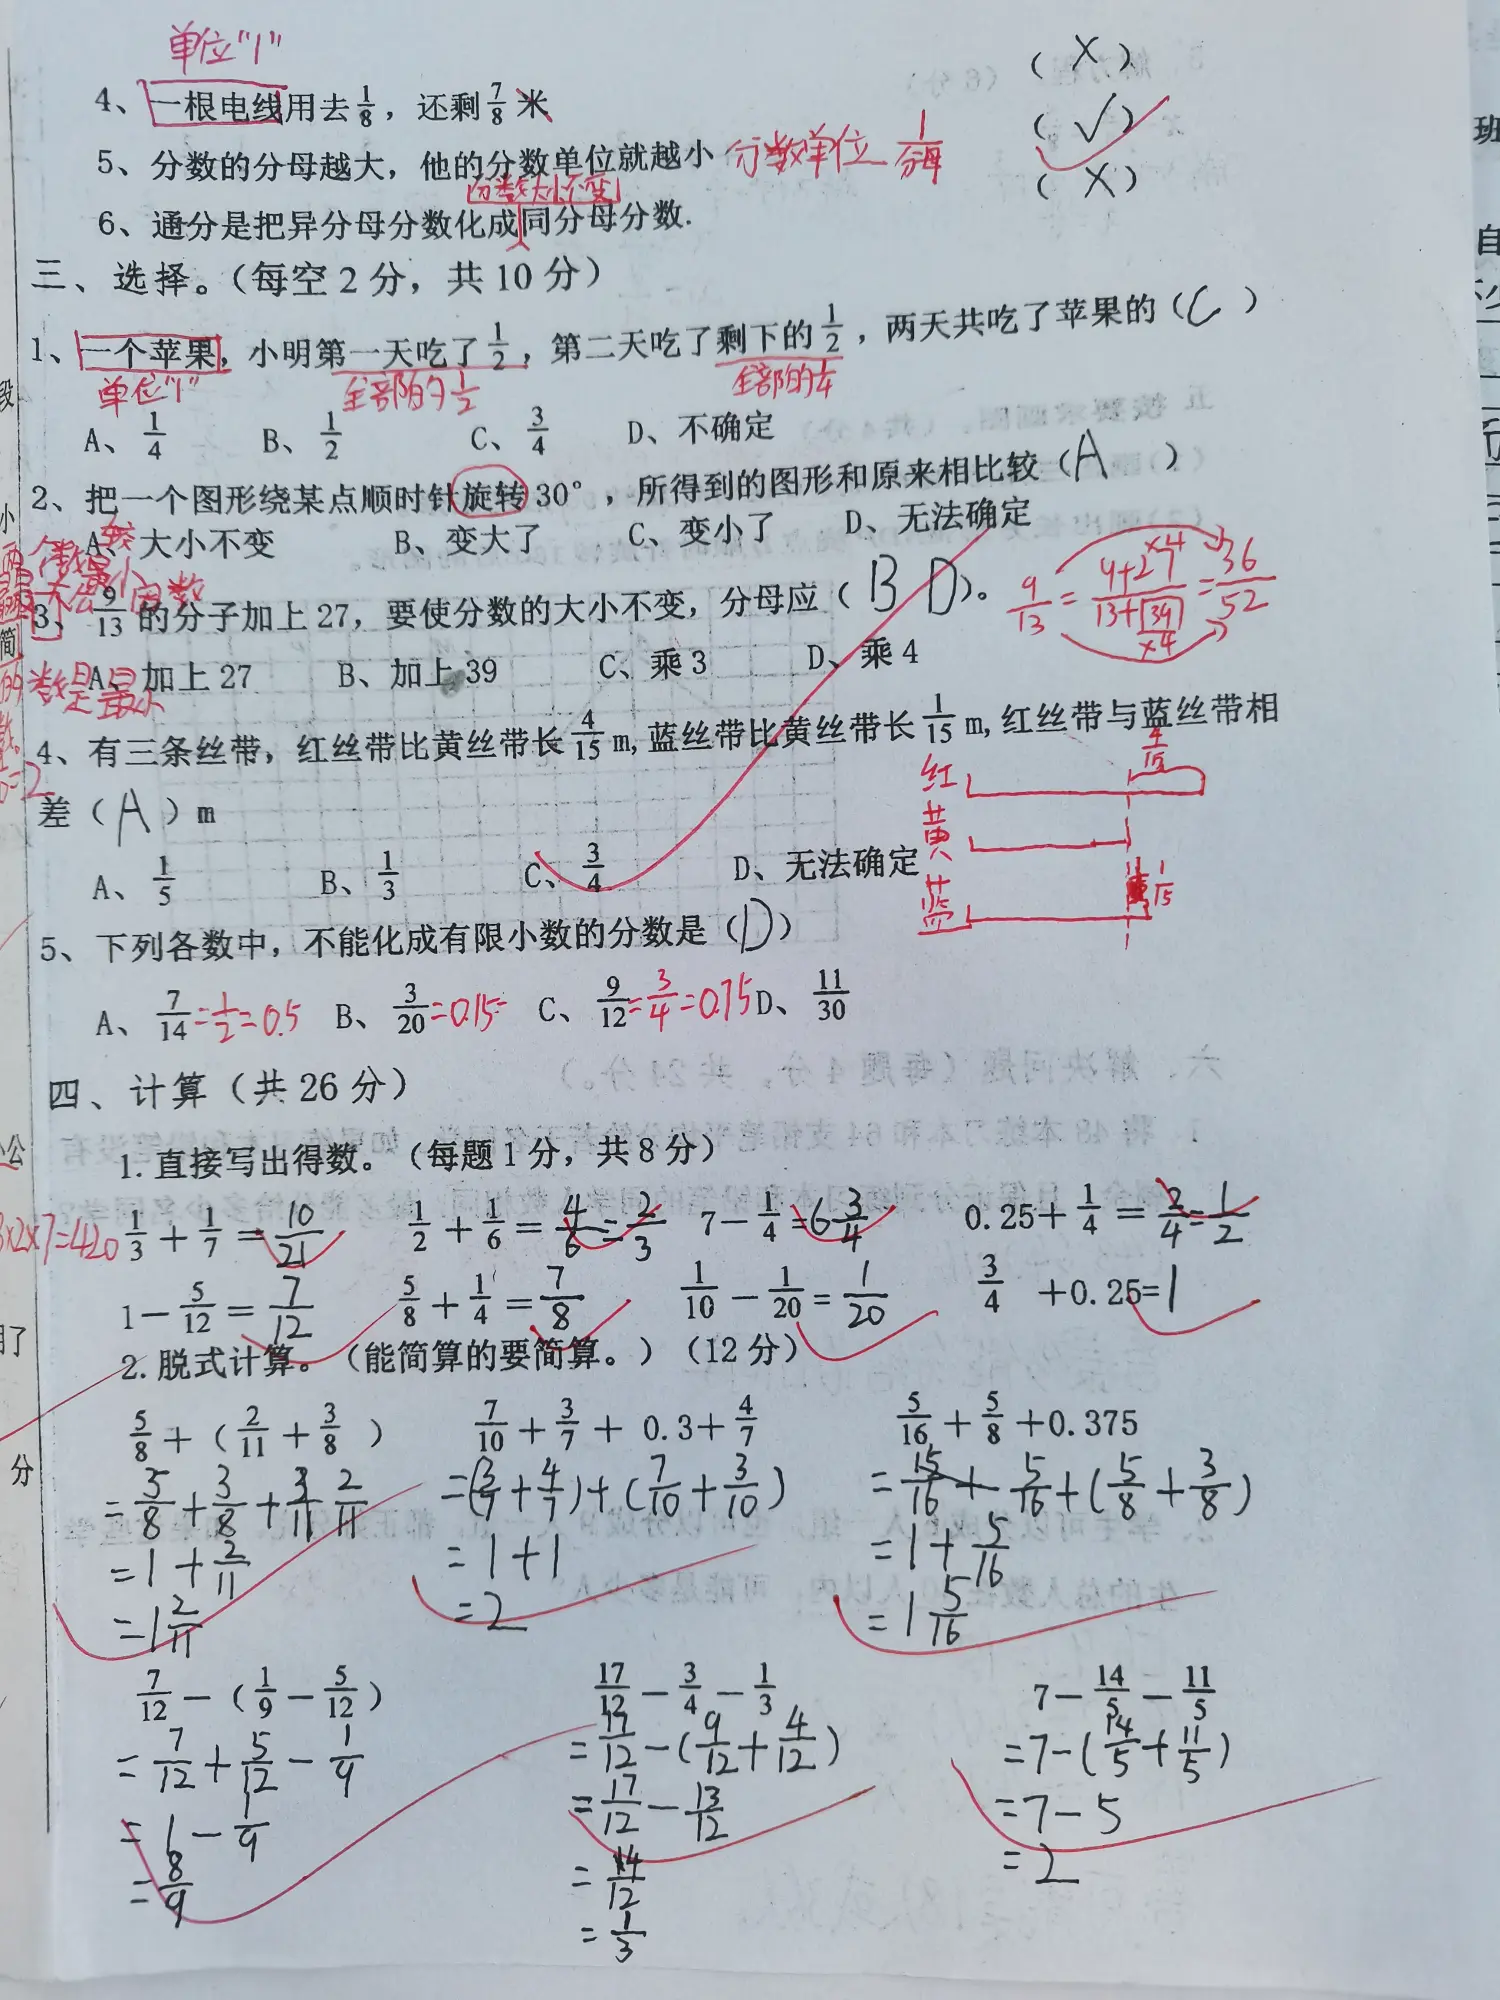 单位"1"
4、一根电线用去1/8，还剩7/8米 (×)
5、分数的分母越大，他的分数单位就越小 分数单位 1/分母 (√)
分数大小不变
6、通分是把异分母分数化成同分母分数. (×)
三、选择。（每空2分，共10分）
1、一个苹果，小明第一天吃了1/2，第二天吃了剩下的1/2，两天共吃了苹果的（C）
单位"1" 全部的1/2 全部的1/4
A、1/4 B、1/2 C、3/4 D、不确定
2、把一个图形绕某点顺时针旋转30°，所得到的图形和原来相比较（A）
A、大小不变 B、变大了 C、变小了 D、无法确定
3、9/13的分子加上27，要使分数的大小不变，分母应（B D）。
9/13 = 9+27/13+39 = 36/52
×4
×4
A、加上27 B、加上39 C、乘3 D、乘4
4、有三条丝带，红丝带比黄丝带长4/15m,蓝丝带比黄丝带长1/15m,红丝带与蓝丝带相
差（A）m
红 4/15
黄
蓝 1/15
A、1/5 B、1/3 C、3/4 D、无法确定
5、下列各数中，不能化成有限小数的分数是（D）
A、7/14=1/2=0.5 B、3/20=0.15 C、9/12=3/4=0.75 D、11/30
四、计算（共26分）
1.直接写出得数。（每题1分，共8分）
1/3+1/7=10/21 1/2+1/6=4/6=2/3 7-1/4=6 3/4 0.25+1/4=2/4=1/2
1-5/12=7/12 5/8+1/4=7/8 1/10-1/20=1/20 3/4+0.25=1
2.脱式计算。（能简算的要简算。）（12分）
5/8+（2/11+3/8） 7/10+3/7+0.3+4/7 5/16+5/8+0.375
=5/8+3/8+2/11 =(3/7+4/7)+(7/10+3/10) =5/16+(5/8+3/8)
=1+2/11 =1+1 =1+5/16
=1 2/11 =2 =1 5/16
7/12-（1/9-5/12） 17/12-3/4-1/3 7-14/5-11/5
=7/12+5/12-1/9 =17/12-(9/12+4/12) =7-(14/5+11/5)
=1-1/9 =17/12-13/12 =7-5
=8/9 =4/12 =2
=1/3